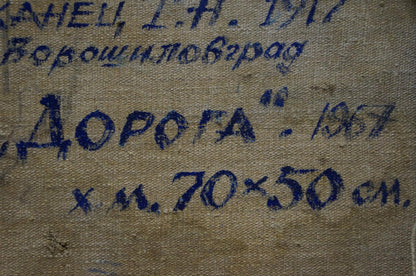 КАНЕЦ, Г.Н. 1917
Ворошиловград
„Дорога". 1967
х.м. 70×50 см.